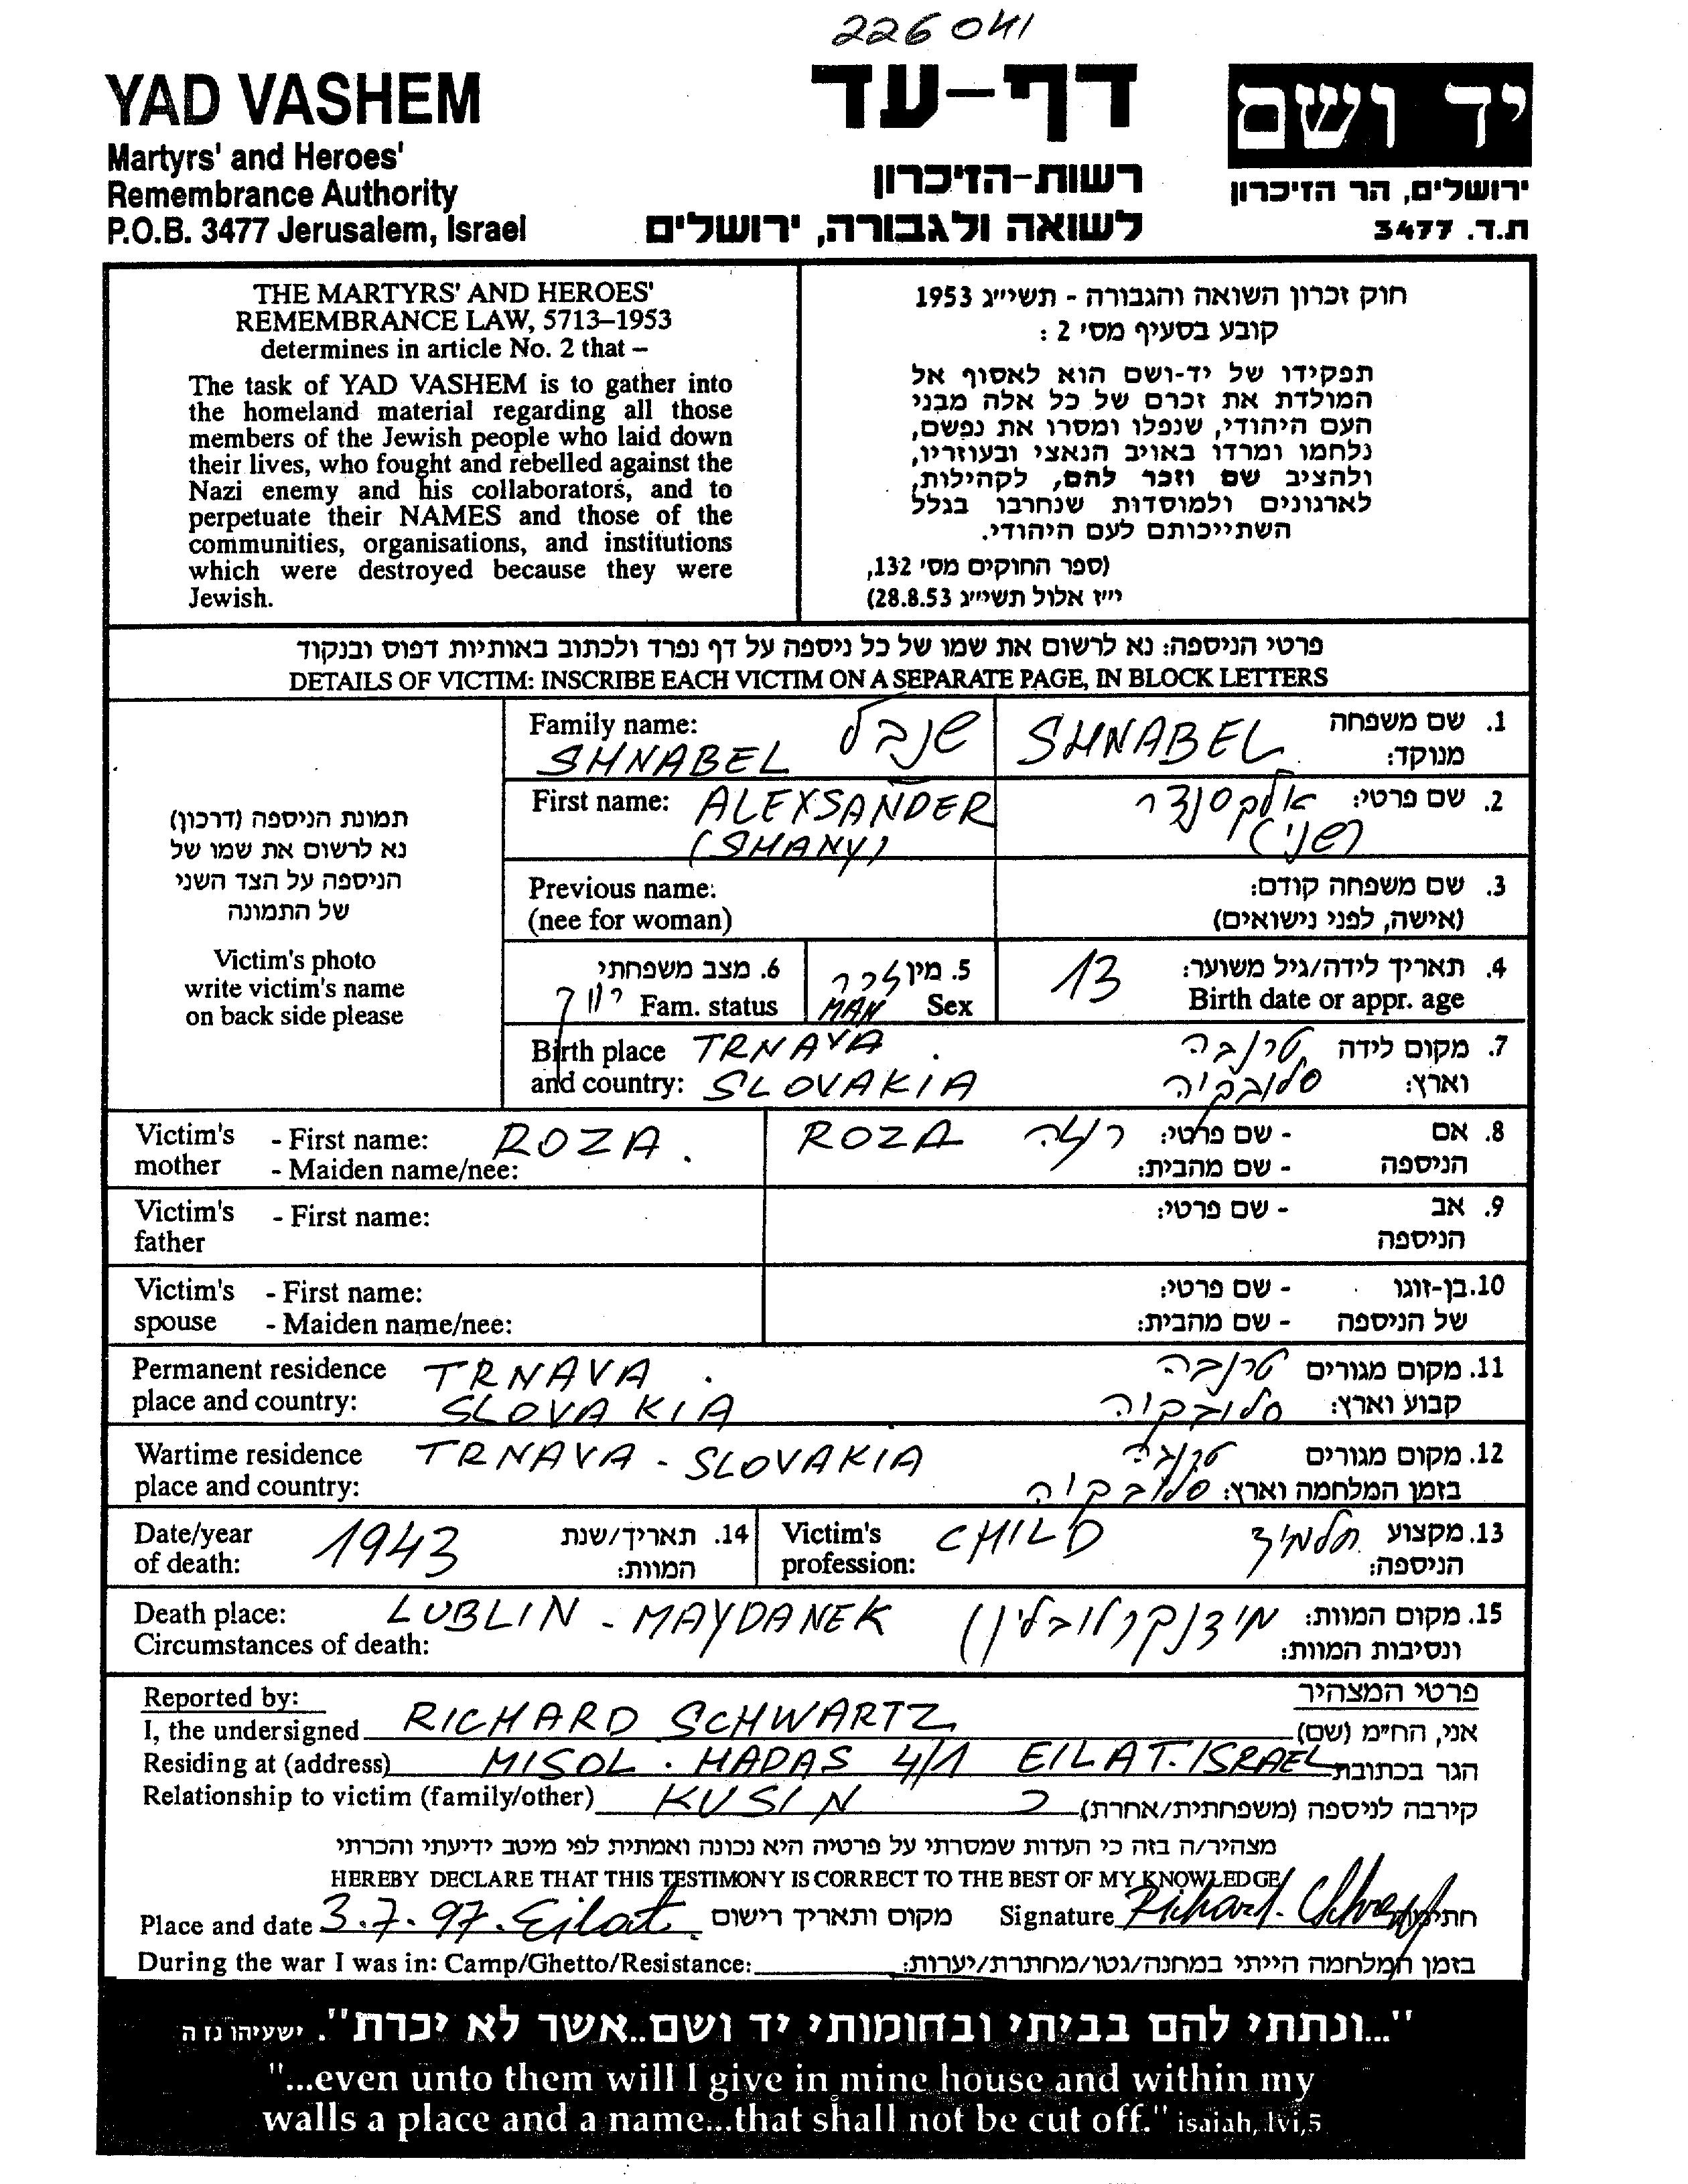 226041
YAD VASHEM
Martyrs' and Heroes'
Remembrance Authority
P.O.B. 3477 Jerusalem, Israel
דף-עד
רשות-הזיכרון
לשואה ולגבורה, ירושלים
יד ושם
ירושלים, הר הזיכרון
ת.ד. 3477
THE MARTYRS' AND HEROES'
REMEMBRANCE LAW, 5713–1953
determines in article No. 2 that –
The task of YAD VASHEM is to gather into
the homeland material regarding all those
members of the Jewish people who laid down
their lives, who fought and rebelled against the
Nazi enemy and his collaborators, and to
perpetuate their NAMES and those of the
communities, organisations, and institutions
which were destroyed because they were
Jewish.
חוק זכרון השואה והגבורה - תשי״ג 1953
קובע בסעיף מס׳ 2 :
תפקידו של יד-ושם הוא לאסוף אל
המולדת את זכרם של כל אלה מבני
העם היהודי, שנפלו ומסרו את נפשם,
נלחמו ומרדו באויב הנאצי ובעוזריו,
ולהציב שם וזכר להם, לקהילות,
לארגונים ולמוסדות שנחרבו בגלל
השתייכותם לעם היהודי.
(ספר החוקים מס׳ 132,
י״ז אלול תשי״ג 28.8.53)
פרטי הניספה: נא לרשום את שמו של כל ניספה על דף נפרד ולכתוב באותיות דפוס ובנקוד
DETAILS OF VICTIM: INSCRIBE EACH VICTIM ON A SEPARATE PAGE, IN BLOCK LETTERS
תמונת הניספה (דרכון)
נא לרשום את שמו של
הניספה על הצד השני
של התמונה
Victim's photo
write victim's name
on back side please
Family name: שנבל SHNABEL 1. שם משפחה
SHNABEL מנוקד:
First name: ALEXSANDER 2. שם פרטי: אלקסנדר
(SHANY) (שני)
Previous name: 3. שם משפחה קודם:
(nee for woman) (אישה, לפני נישואים)
6. מצב משפחתי 5. מין זכר 13 4. תאריך לידה/גיל משוער:
Fam. status MAN Sex Birth date or appr. age
Birth place TRNAVA. 7. מקום לידה טרנבה
and country: SLOVAKIA וארץ: סלובקיה
Victim's - First name: ROZA. ROZA 8. אם - שם פרטי: רוזה
mother - Maiden name/nee: הניספה - שם מהבית:
Victim's - First name: 9. אב - שם פרטי:
father הניספה
Victim's - First name: 10. בן-זוגו - שם פרטי:
spouse - Maiden name/nee: של הניספה - שם מהבית:
Permanent residence TRNAVA. 11. מקום מגורים טרנבה
place and country: SLOVAKIA קבוע וארץ: סלובקיה
Wartime residence TRNAVA - SLOVAKIA 12. מקום מגורים טרנבה
place and country: בזמן המלחמה וארץ: סלובקיה
Date/year 1943 14. תאריך/שנת Victim's CHILD 13. מקצוע תלמיד
of death: המוות: profession: הניספה:
Death place: LUBLIN - MAYDANEK 15. מקום המוות: מידנק (לובלין)
Circumstances of death: ונסיבות המוות:
Reported by: פרטי המצהיר
I, the undersigned RICHARD SCHWARTZ אני, הח״מ (שם)
Residing at (address) MISOL. HADAS 4/1 EILAT. ISRAEL הגר בכתובת
Relationship to victim (family/other) KUSIN קירבה לניספה (משפחתית/אחרת)
מצהיר/ה בזה כי העדות שמסרתי על פרטיה היא נכונה ואמתית לפי מיטב ידיעתי והכרתי
HEREBY DECLARE THAT THIS TESTIMONY IS CORRECT TO THE BEST OF MY KNOWLEDGE
Place and date 3.7.97. Eilat. מקום ותאריך רישום Signature Richard. חתימה
During the war I was in: Camp/Ghetto/Resistance: בזמן המלחמה הייתי במחנה/גטו/מחתרת/יערות:
"...ונתתי להם בביתי ובחומותי יד ושם..אשר לא יכרת". ישעיהו נו ה
"...even unto them will I give in mine house and within my
walls a place and a name...that shall not be cut off." isaiah, lvi,5